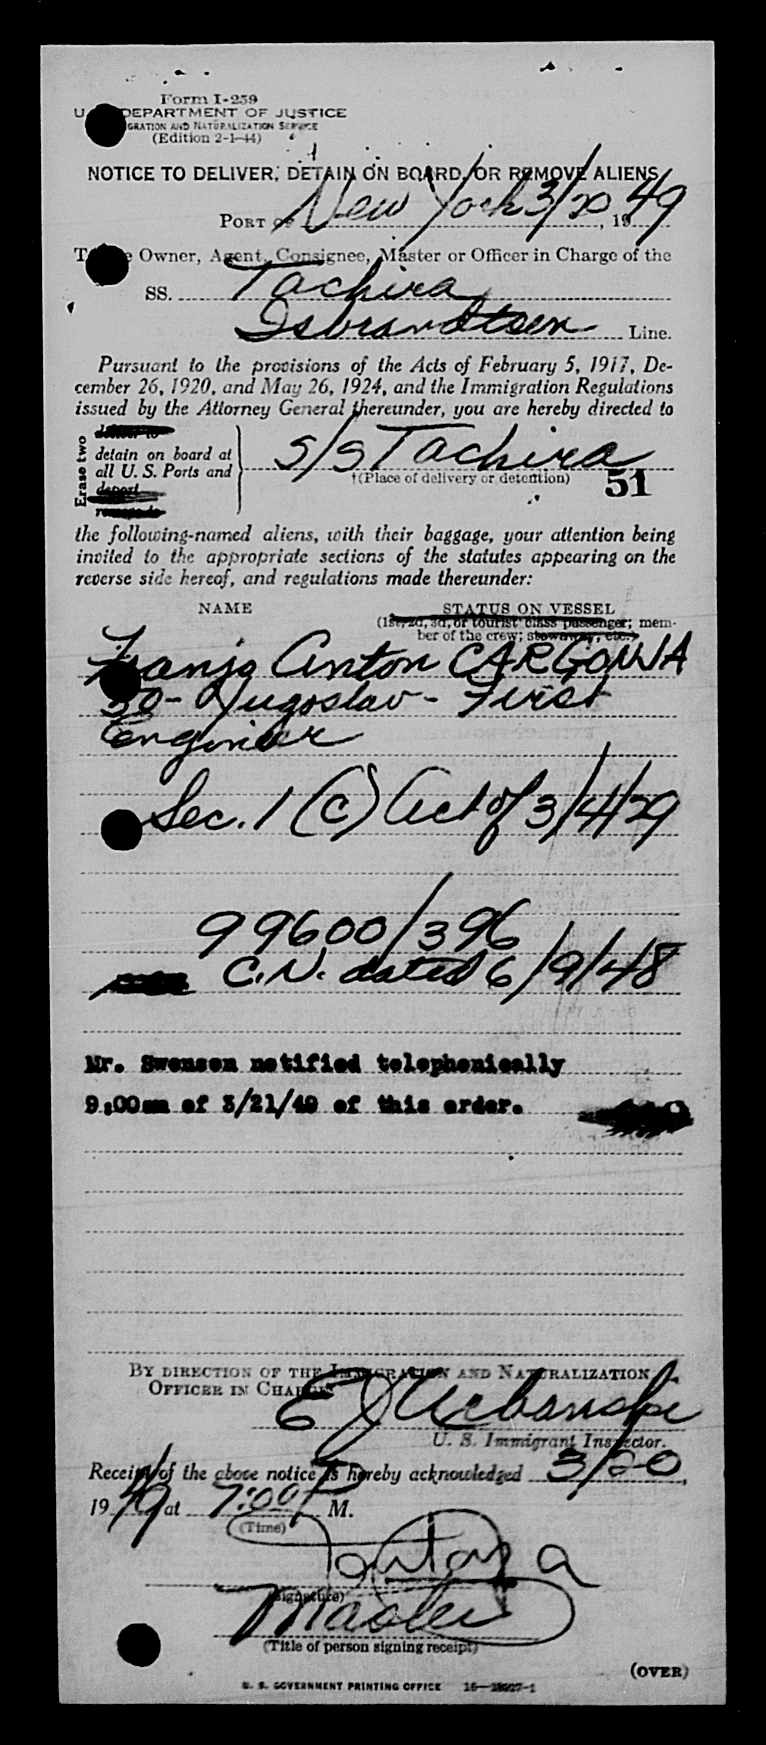 Form I-259
U. DEPARTMENT OF JUSTICE
GRATION AND NATURALIZATION SERVICE
(Edition 2-1-44)
NOTICE TO DELIVER, DETAIN ON BOARD, OR REMOVE ALIENS
PORT OF New York 3/20, 1949
T e Owner, Agent, Consignee, Master or Officer in Charge of the
SS. Tachira
Isbrandtsen Line.
Pursuant to the provisions of the Acts of February 5, 1917, De-
cember 26, 1920, and May 26, 1924, and the Immigration Regulations
issued by the Attorney General thereunder, you are hereby directed to
Erase two
deliver to
detain on board at
all U. S. Ports and
deport
s/s Tachira
†(Place of delivery or detention)
51
the following-named aliens, with their baggage, your attention being
invited to the appropriate sections of the statutes appearing on the
reverse side hereof, and regulations made thereunder:
NAME STATUS ON VESSEL
(1st, 2d, 3d, or tourist class passenger; mem-
ber of the crew; stowaway, etc.)
Franjo Anton CARGONJA
30 - Yugoslav - First
Engineer
Sec. 1 (C) Act of 3/4/29
99600/396
C.N. dated 6/9/48
Mr. Swensen notified telephonically
9:00am of 3/21/49 of this order.
BY DIRECTION OF THE IMMIGRATION AND NATURALIZATION
OFFICER IN CHARGE
E J Urbanski
U. S. Immigrant Inspector.
Receipt of the above notice is hereby acknowledged 3/20,
1949 at 7:00 P M.
(Time)
(Signature)
Master
(Title of person signing receipt)
(OVER)
U. S. GOVERNMENT PRINTING OFFICE